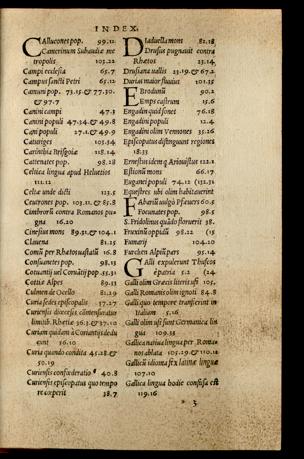 INDEX.
CAllucones pop. 99.12
Camerinum Subaudiæ metropolis
103.22
Campi ecclesia 65.7
Campus sancti Petri 65.12
Canuni pop. 73.15. & 77.30.
& 97.7
Canini campi 47.3
Canini populi 47.34. & 49.8
Cani populi 27.1. & 49.9
Caturiges 103.34
Carinthia Brisgoia 118.14
Cattenates pop. 98.28
Celtica lingua apud Heluetios
111.12
Celtæ unde dicti 123.5
Ceutrones pop. 103.21. & 85.8
Cimbrorū contra Romanos pugna
16.20
Cinesius mons 89.31. & 104.1
Clauena 81.25
Comū per Rhætos uastatū 16.8
Consuanetes pop. 98.13
Cotuantij uel Couātij pop. 55.31
Cottiæ Alpes 89.13
Culmen de Ocello 81.29
Curia sedes episcopalis 37.27
Curiensis diœcesis
limitib. Rhætiæ 36.3. & 37.10
Curiam quidam à Coruantijs dicunt
56.10
Curia quando condita 45.28. &
50.19
Curiensis confœderatio 40.8
Curiensis episcopatus quo tempore
cœperit 38.7
DIaduella mons 82.18
Drusus pugnauit contra
Rhætos 23.14
Drusiana uallis 23.19. & 67.2
Durias maior fluuius 101.25
EBrodunū 90.2
Emps castrum 15.6
Engadin quid sonet 76.18
Engadini populi 12.4
Engadini olim Vennones 35.26
Episcopatus distinguunt regiones
18.33
Ernestus idem
Ariouistus 122.1
Estionū mons 66.17
Euganei populi 74.12
Equestres ubi olim habitauerint
FAbariū
Pfeuers 60.5
Focunates pop. 98.5
S. Fridolinus quādo floruerit 38.
Fruxinū oppidū 98.22
Fumarij 104.20
Furchen Alpiū pars 95.14
GAlli expulerunt Thuscos
è patria 5.2
Galli olim Græcis literis usi 105.
Galli Romanis olim ignoti 84.8
Galli quo tempore transierint in
Italiam 5.16
Galli olim usi sunt Germanica lingua
109.35
Gallica natiua lingua per Romanos
ablata 105.29. & 110.12
Gallicū idioma fit ex latinæ linguæ
107.10
Gallica lingua hodie confusa est
119.16
* 3